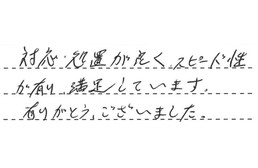 対応・処置が良く、スピード性
が有り、満足しています。
ありがとうございました。